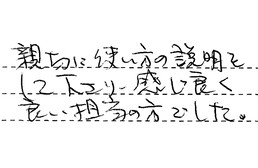 親切に使い方の説明を
して下さり感じ良く
良い担当の方でした。